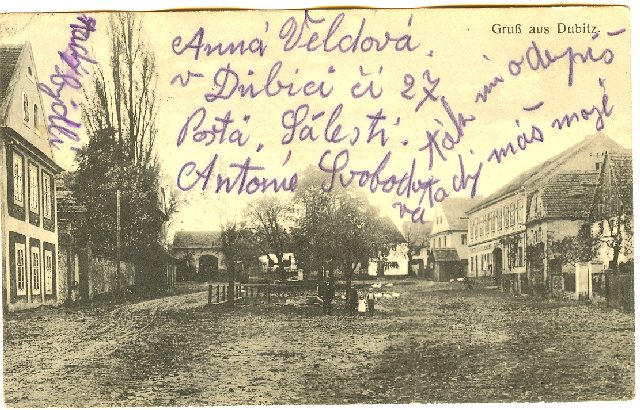 Gruß aus Dubitz.
Anná Veldová.
v Dubici čí 27
Poštá, Sálestí.
Antonie Svobody
ták mi odepiš
tady bydlí
máš mozé